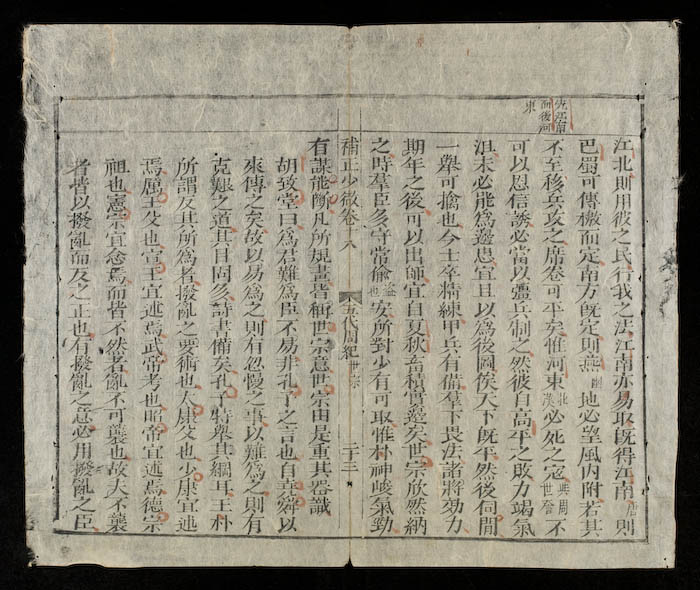 先江南
而後河
東
江北則用彼之民行我之法江南亦易取既得江南唐則
巴蜀可傳檄而定南方既定則燕幽地必望風內附若其
不至移兵攻之席卷可平矣惟河東北漢必死之寇與周世讐不
可以恩信誘必當以彊兵制之然彼自高平之敗力竭氣
沮未必能爲邊患宜且以爲後圖俟天下既平然後伺間
一舉可擒也今士卒精練甲兵有備羣下畏法諸將効力
期年之後可以出師宜自夏秋畜積實邊矣世宗欣然納
之時羣臣多守常偷也安所對少有可取惟朴神峻氣勁
補正少微卷十八 五代周紀世宗 二十三
有謀能斷凡所規畫皆稱世宗意世宗由是重其器識
胡致堂曰爲君難爲臣不易非孔子之言也自堯舜以
來傳之矣故以易爲之則有忽慢之事以難爲之則有
克艱之道其目固多詩書備矣孔子特舉其綱耳王朴
所謂反其所爲者撥亂之要術也大康父也少康宜述
焉厲王父也宣王宜述焉武帝考也昭帝宜述焉德宗
祖也憲宗宜念焉而皆不然者亂不可襲也故夫不襲
者皆以撥亂而反之正也有撥亂之意必用撥亂之臣